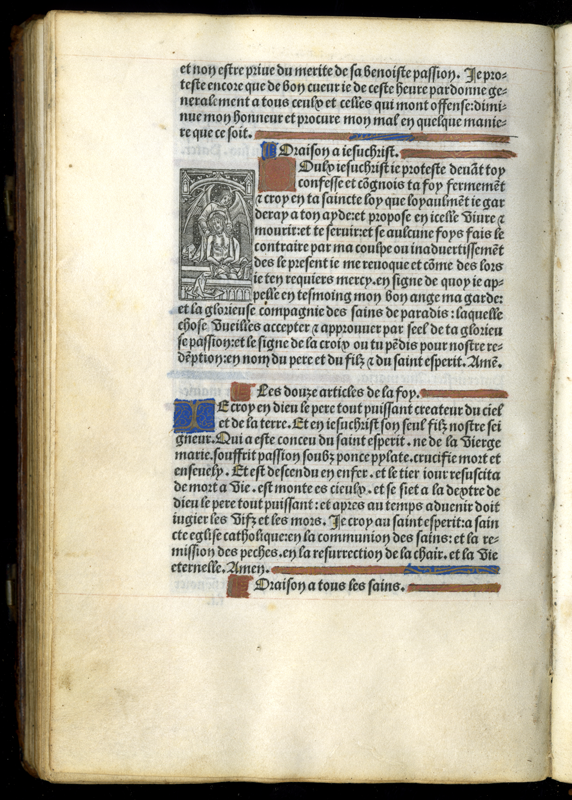 et non estre priue du merite de sa benoiste passion. Je pro-
teste encore que de bon cueur ie de ceste heure pardonne ge-
neralement a tous ceulx et celles qui mont offense: dimi-
nue mon honneur et procure mon mal en quelque manie-
re que ce soit.
Oraison a iesuchrist.
Oulx iesuchrist ie proteste deuãt toy
confesse et cõgnois ta foy fermemẽt
⁊ croy en ta saincte loy que loyaulmẽt ie gar
deray a ton ayde: et propose en icelle Viure ⁊
mourir: et te seruir: et se aulcune foys fais le
contraire par ma coulpe ou inaduertissemẽt
des le present ie me reuoque et cõme des lors
ie ten requiers mercy. en signe de quoy ie ap-
pelle en tesmoing mon bon ange ma garde:
et la glorieuse compagnie des sains de paradis: laquelle
chose Vueilles accepter ⁊ approuuer par seel de ta glorieu
se passion: et le signe de la croix ou tu pẽdis pour nostre re-
dẽption: en nom du pere et du filz ⁊ du saint esperit. Amẽ.
Les douze articles de la foy.
Je croy en dieu le pere tout puissant createur du ciel
et de la terre. Et en iesuchrist son seul filz nostre sei
gneur. Qui a este conceu du saint esperit. ne de la Vierge
marie. souffrit passion soubz ponce pylate. crucifie mort et
enseuely. Et est descendu en enfer. et le tier iour resuscita
de mort a Vie. est monte es cieulx. et se siet a la dextre de
dieu le pere tout puissant: et apres au temps aduenir doit
iugier les Vifz et les mors. Je croy au saint esperit: a sain
cte eglise catholique: en la communion des sains: et la re-
mission des peches. en la resurrection de la chair. et la Vie
eternelle. Amen.
Oraison a tous les sains.